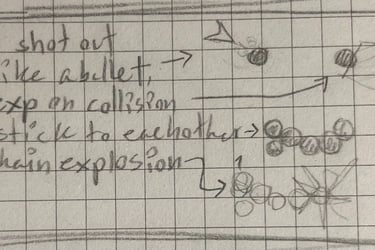 shot out
ike a bullet,
exp on collision
stick to eachother
hain explosion
1